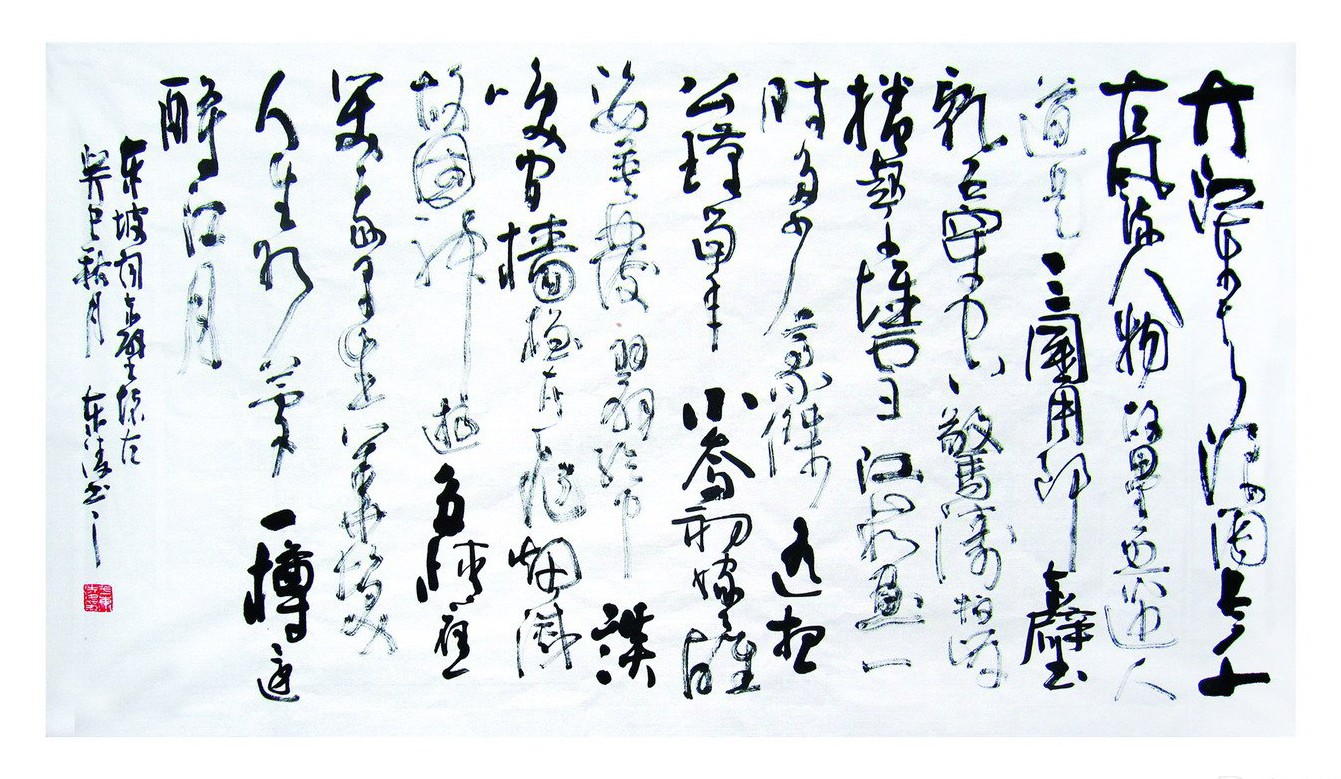 大江東去浪淘盡千
古風流人物故壘西邊人
道是三國周郎赤壁
亂石穿空驚濤拍岸
捲起千堆雪江山如畫一
時多少豪傑遙想
公瑾當年小喬初嫁了雄
姿英發羽扇綸巾談
笑間檣櫓灰飛烟滅
故國神遊多情應
笑我早生華髮
人生如夢一樽還
酹江月
東坡詞赤壁懷古
癸巳秋月